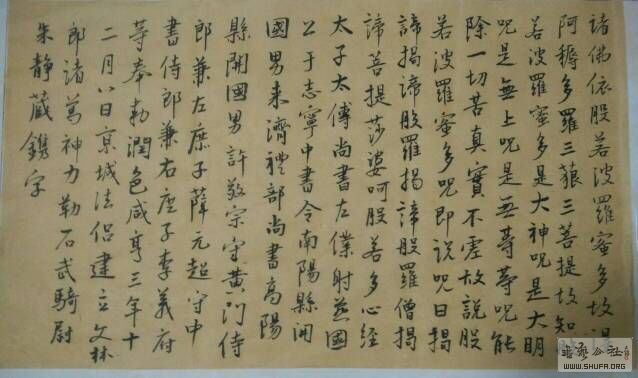 諸佛依般若波羅蜜多故得
阿耨多羅三藐三菩提故知
若波羅蜜多是大神呪是大明
呪是無上呪是無等等呪能
除一切苦真實不虛故說般
若波羅蜜多呪即說呪曰揭
諦揭諦般羅揭諦般羅僧揭
諦菩提莎婆呵般若多心經
太子太傅尚書左僕射燕國
公于志寧中書令南陽縣開
國男来濟禮部尚書高陽
縣開國男許敬宗守黃門侍
郎兼左庶子薛元超守中
書侍郎兼右庶子李義府
等奉勅潤色咸亨三年十
二月八日京城法侶建立文林
郎諸葛神力勒石武騎尉
朱静藏鐫字
WWW.SHUFA.ORG